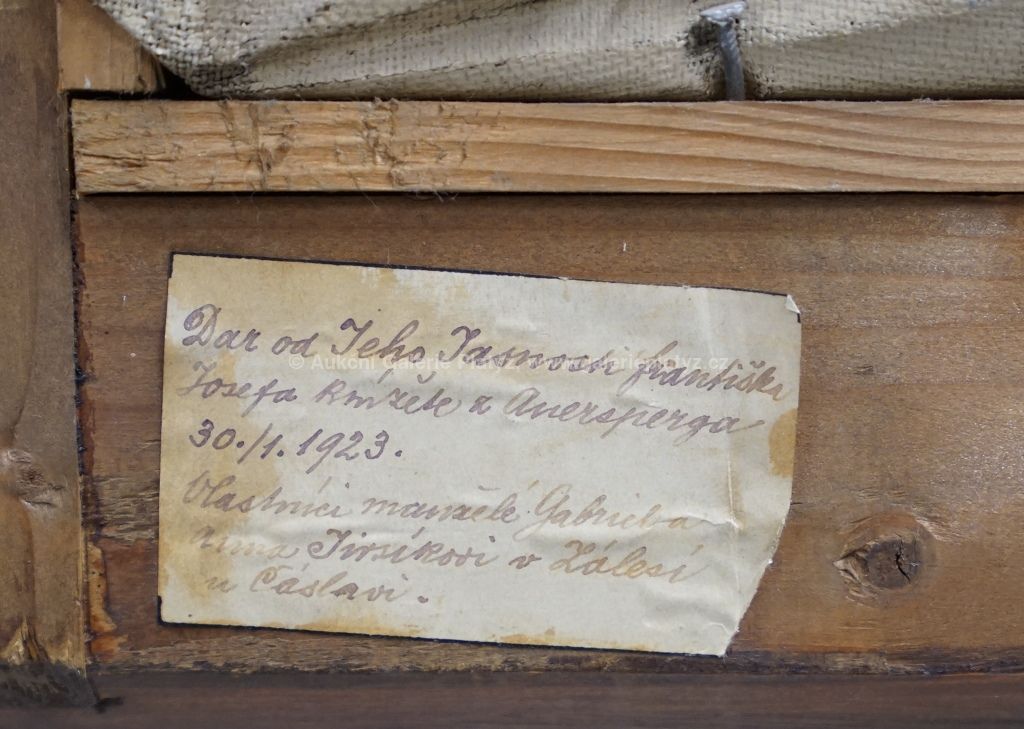 Dar od Jeho Jasnosti františka
Josefa knížete z Auersperga
30./1. 1923.
Vlastníci manželé Gabriel a
Anna Jirsíkovi v Zálesí
u Čáslavi.
© Aukční Galerie Platýz, www.galerieplatyz.cz